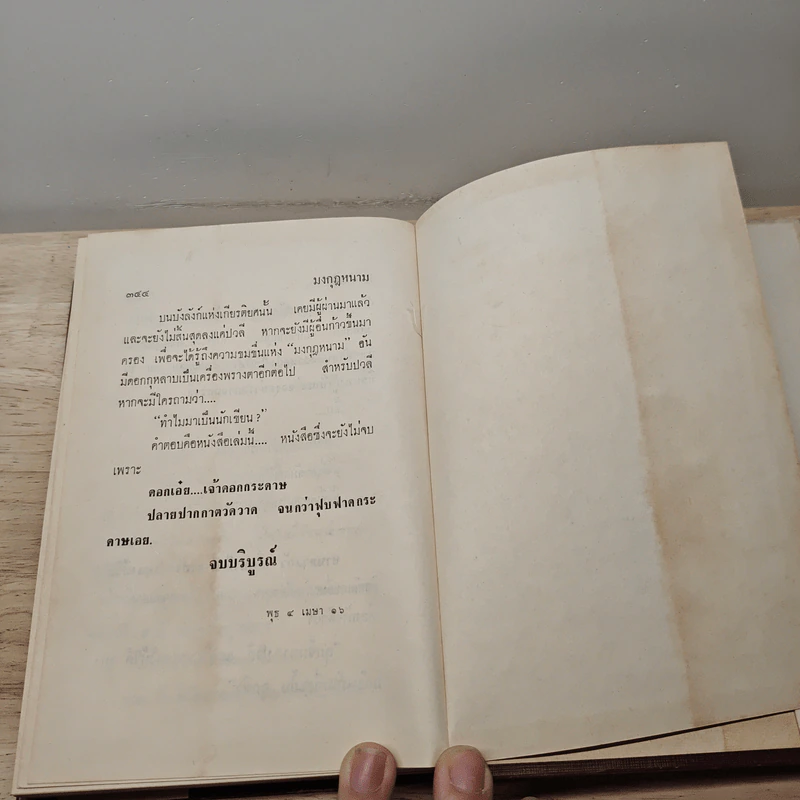 ๓๔๔ มงกุฎหนาม
บนบังลังก์แห่งเกียรติยศนั้น เคยมีผู้ผ่านมาแล้ว
และจะยังไม่สิ้นสุดลงแต่ปวลี หากจะยังมีผู้อื่นก้าวขึ้นมา
ครอง เพื่อจะได้รู้ถึงความขมขื่นแห่ง “มงกุฎหนาม” อัน
มีดอกกุหลาบเป็นเครื่องพรางตาอีกต่อไป สำหรับปวลี
หากจะมีใครถามว่า....
“ทำไมมาเป็นนักเขียน ?”
คำตอบคือหนังสือเล่มนี้.... หนังสือซึ่งจะยังไม่จบ
เพราะ
ดอกเอ๋ย....เจ้าดอกกระดาษ
ปลายปากกาตวัดวาด จนกว่าฟุบฟาดกระ
ดาษเอย.
จบบริบูรณ์
พุธ ๔ เมษา ๑๖